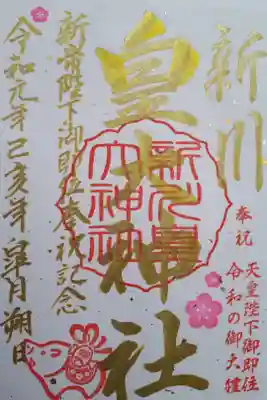 新川
皇大神社
奉祝
天皇陛下御即位
令和の御大禮
新川皇
大神社
新帝陛下御即位奉祝記念
令和元年己亥年皐月朔日